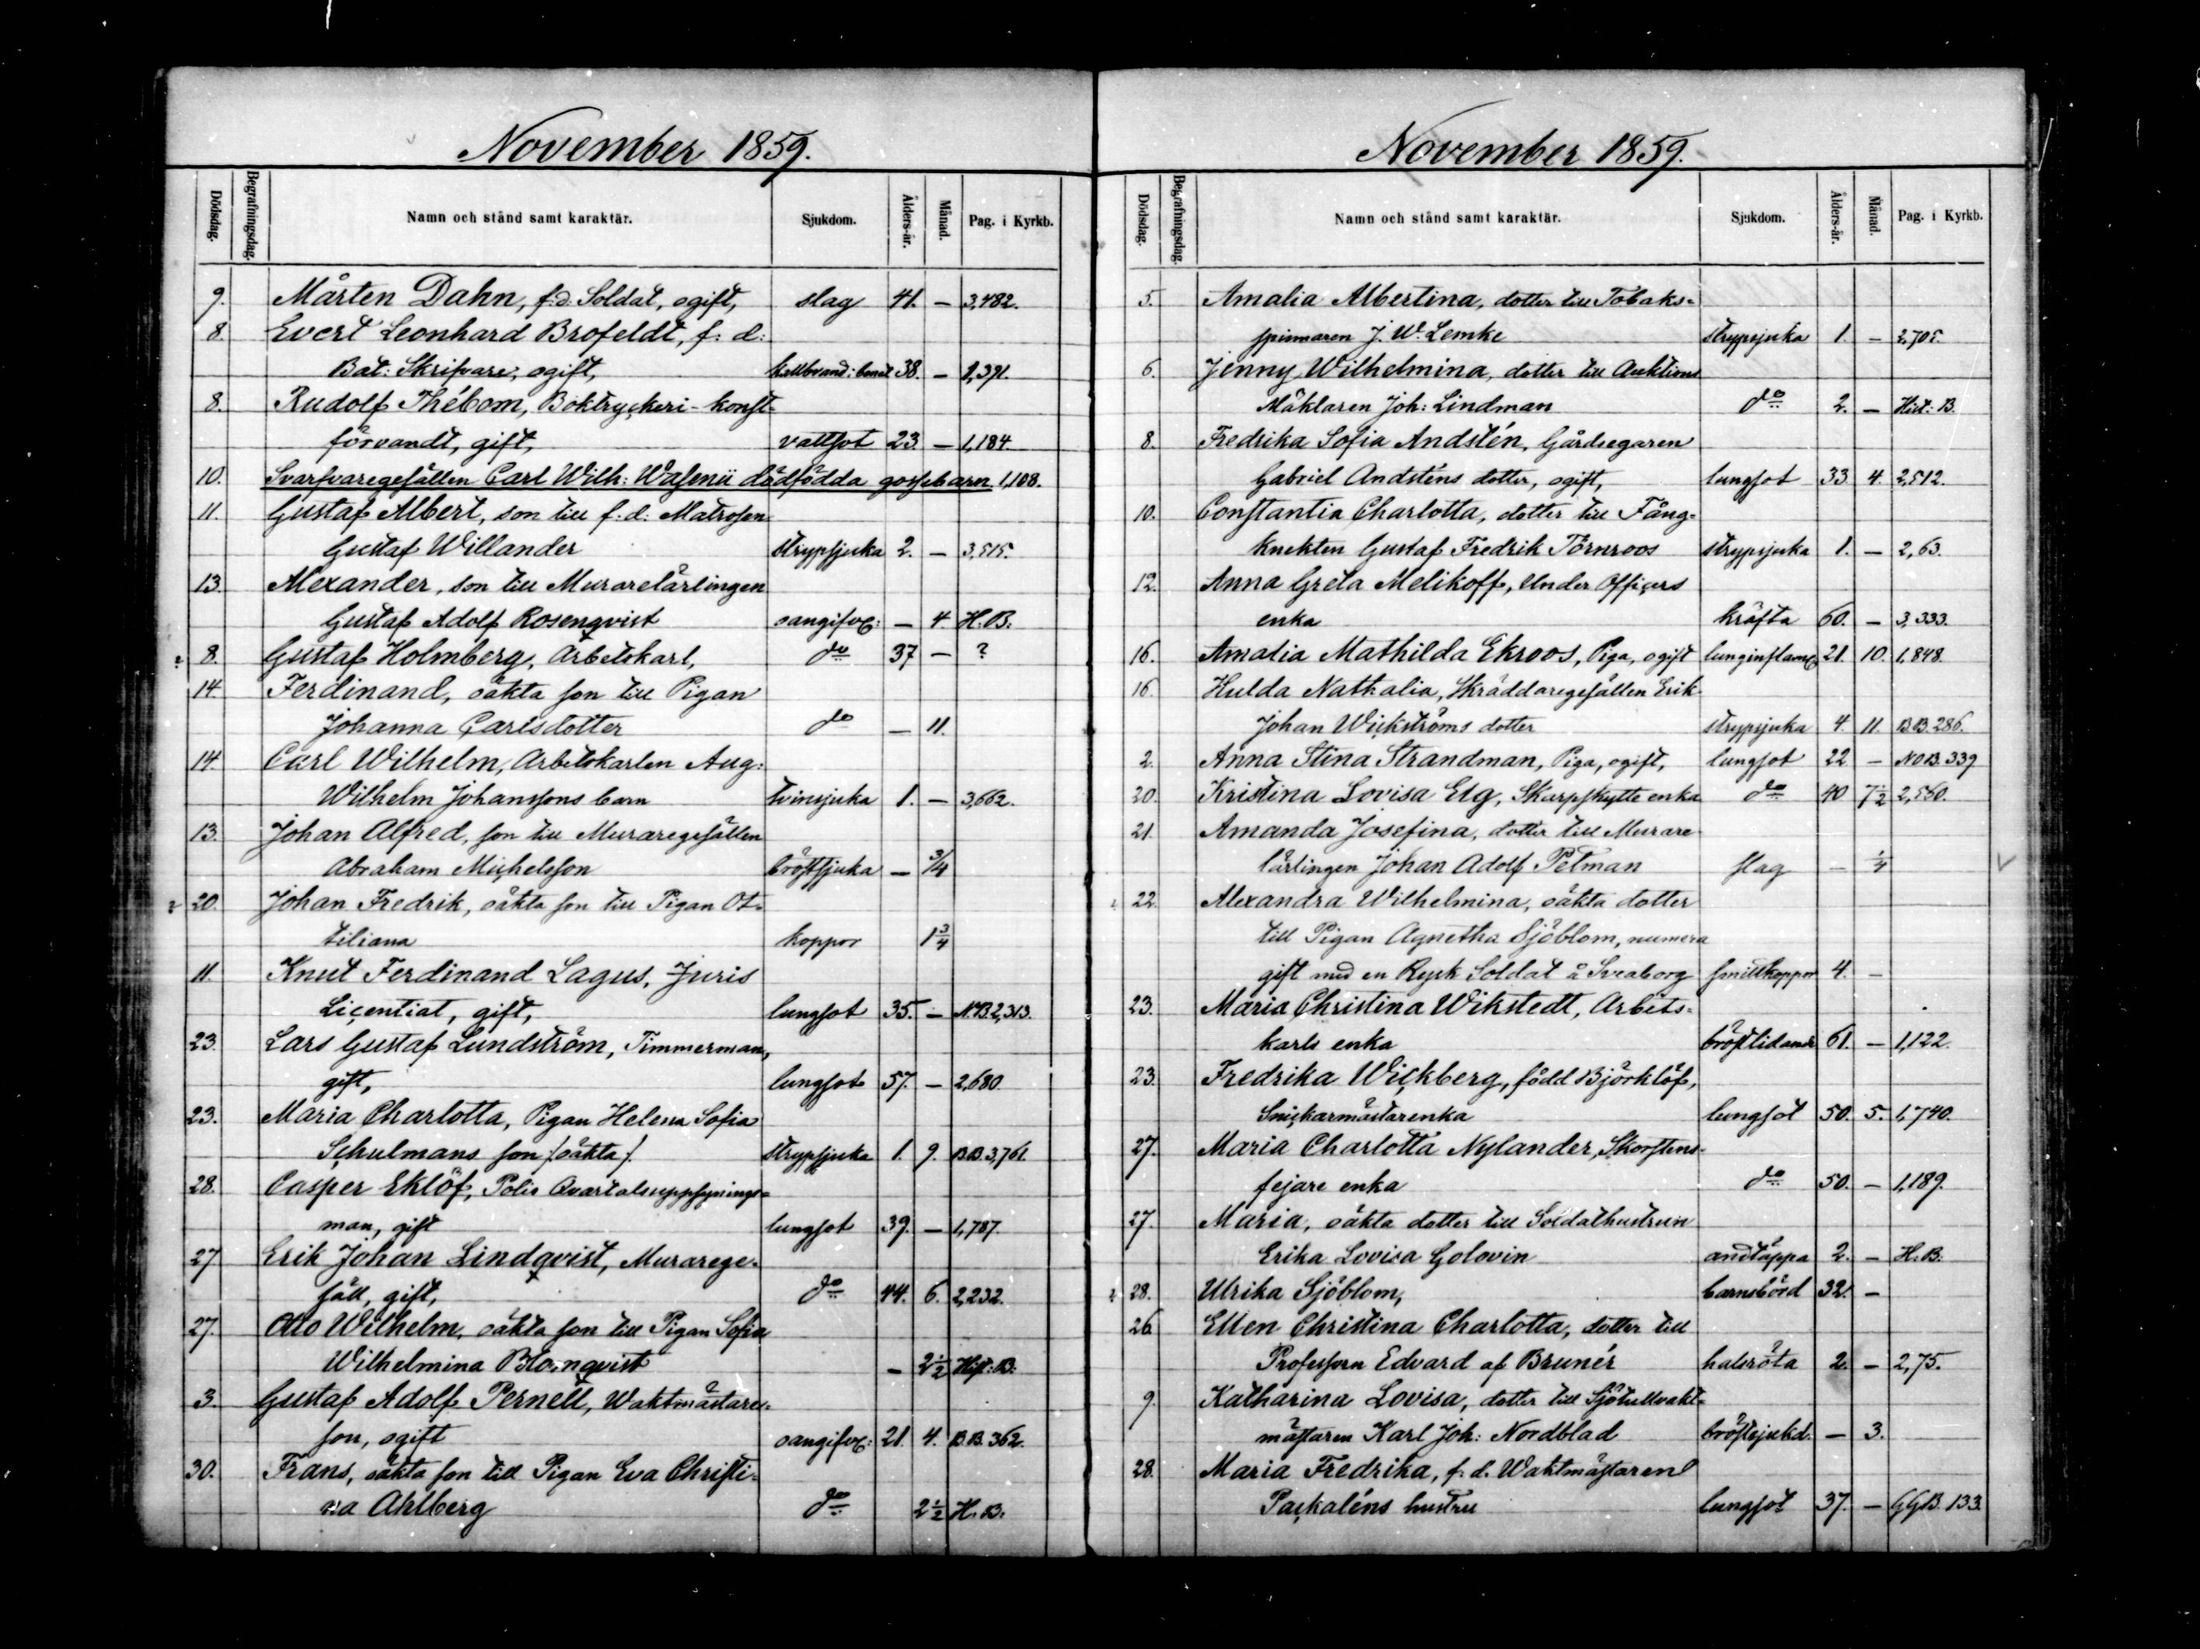 November 1859.
Dödsdag. Begrafningsdag. Namn och stånd samt karaktär. Sjukdom. Ålders-år. Månad. Pag. i Kyrkb.
9. Mårten Dahn, f. d. Soldat, ogift, slag 41. — 3,482.
8. Evert Leonhard Brofeldt, f. d:
Bat: Skrifvare, ogift, kallbrand: benet 38. — 1,391.
8. Rudolf Thébom, Boktryckeri-konst-
förvandt, gift, vattsot 23 — 1,184.
10. Svarfvaregesällen Carl Wilh: Wasenii dödfödda gossebarn 1,108.
11. Gustaf Albert, son till f. d. Matrosen
Gustaf Willander strypsjuka 2. — 3,515.
13. Alexander, son till Murarelärlingen
Gustaf Adolf Rosenqvist oangifve: — 4. H. B.
2 8. Gustaf Holmberg, Arbetskarl, do 37 — ?
14. Ferdinand, oäkta son till Pigan
Johanna Carlsdotter do — 11.
14. Carl Wilhelm, Arbetskarlen Aug:
Wilhelm Johanssons barn tvinsjuka 1. — 3,662.
13. Johan Alfred, son till Muraregesällen
Abraham Michelsson bröstsjuka — 3/4
2 20. Johan Fredrik, oäkta son till Pigan Ot-
tiliana koppor 1 3/4
11. Knut Ferdinand Lagus, Juris
Licentiat, gift, lungsot 35. — N.B. 2,313.
23. Lars Gustaf Lundström, Timmerman,
gift, lungsot 57. — 2,680.
23. Maria Charlotta, Pigan Helena Sofia
Schulmans son /oäkta/. strypsjuka 1. 9. B.B. 3,761.
28. Casper Eklöf, Polis Qvartalsuppsynings-
man, gift lungsot 39. — 1,787.
27 Erik Johan Lindqvist, Murarege-
säll, gift, do 44. 6. 2,232.
27. Otto Wilhelm, oäkta son till Pigan Sofia
Wilhelmina Blomqvist — 2 1/2 Hist: B.
3. Gustaf Adolf Pernell, Waktmästare-
son, ogift oangifve: 21. 4. B.B. 362.
30. Frans, oäkta son till Pigan Eva Christi-
na Ahlberg do 2 1/2 H. B.
November 1859.
Dödsdag. Begrafningsdag. Namn och stånd samt karaktär. Sjukdom. Ålders-år. Månad. Pag. i Kyrkb.
5. Amalia Albertina, dotter till Tobaks-
spinnaren J. W. Lemke strypsjuka 1. — 2,705.
6. Jenny Wilhelmina, dotter till Auktions
Mäklaren Joh: Lindman do 2. — Hist: B.
8. Fredrika Sofia Andstén, Gårdsegaren
Gabriel Andsténs dotter, ogift, lungsot 33 4. 2,512.
10. Constantia Charlotta, dotter till Fång-
knekten Gustaf Fredrik Törnroos strypsjuka 1. — 2,63.
12. Anna Greta Melikoff, Under Officers
enka kräfta 60. — 3,333.
16. Amalia Mathilda Ekroos, Piga, ogift lunginflam: 21. 10. 1,848.
16. Hulda Nathalia, Skräddaregesällen Erik
Johan Wickströms dotter strypsjuka 4. 11. B.B. 286.
2. Anna Stina Strandman, Piga, ogift, lungsot 22 — N.O.B. 339
20. Kristina Lovisa Elg, Skarpskytte enka do 40 7 1/2 2,560.
21. Amanda Josefina, dotter till Murare
lärlingen Johan Adolf Petman slag — 1/4
2 22. Alexandra Wilhelmina, oäkta dotter
till Pigan Agnetha Sjöblom, numera
gift med en Rysk Soldat å Sveaborg smittkoppor 4. —
23. Maria Christina Wikstedt, Arbets-
karls enka bröstlidande 61. — 1,122.
23. Fredrika Wickberg, född Björklöf,
Snickarmästarenka lungsot 50. 5. 1,740.
27. Maria Charlotta Nylander, Skorstens-
fejare enka do 50. — 1,189.
27. Maria, oäkta dotter till Soldathustrun
Erika Lovisa Golovin andtäppa 2. — H. B.
2 28. Ulrika Sjöblom, barnsbörd 32. —
26 Ellen Christina Charlotta, dotter till
Professorn Edvard af Brunér halsröta 2. — 2,75.
9. Katharina Lovisa, dotter till Sjötullvakt-
mästaren Karl Joh: Nordblad bröstsjukd. — 3.
28. Maria Fredrika, f. d. Waktmästaren
Packaléns hustru lungsot 37. — G.G.B. 133.